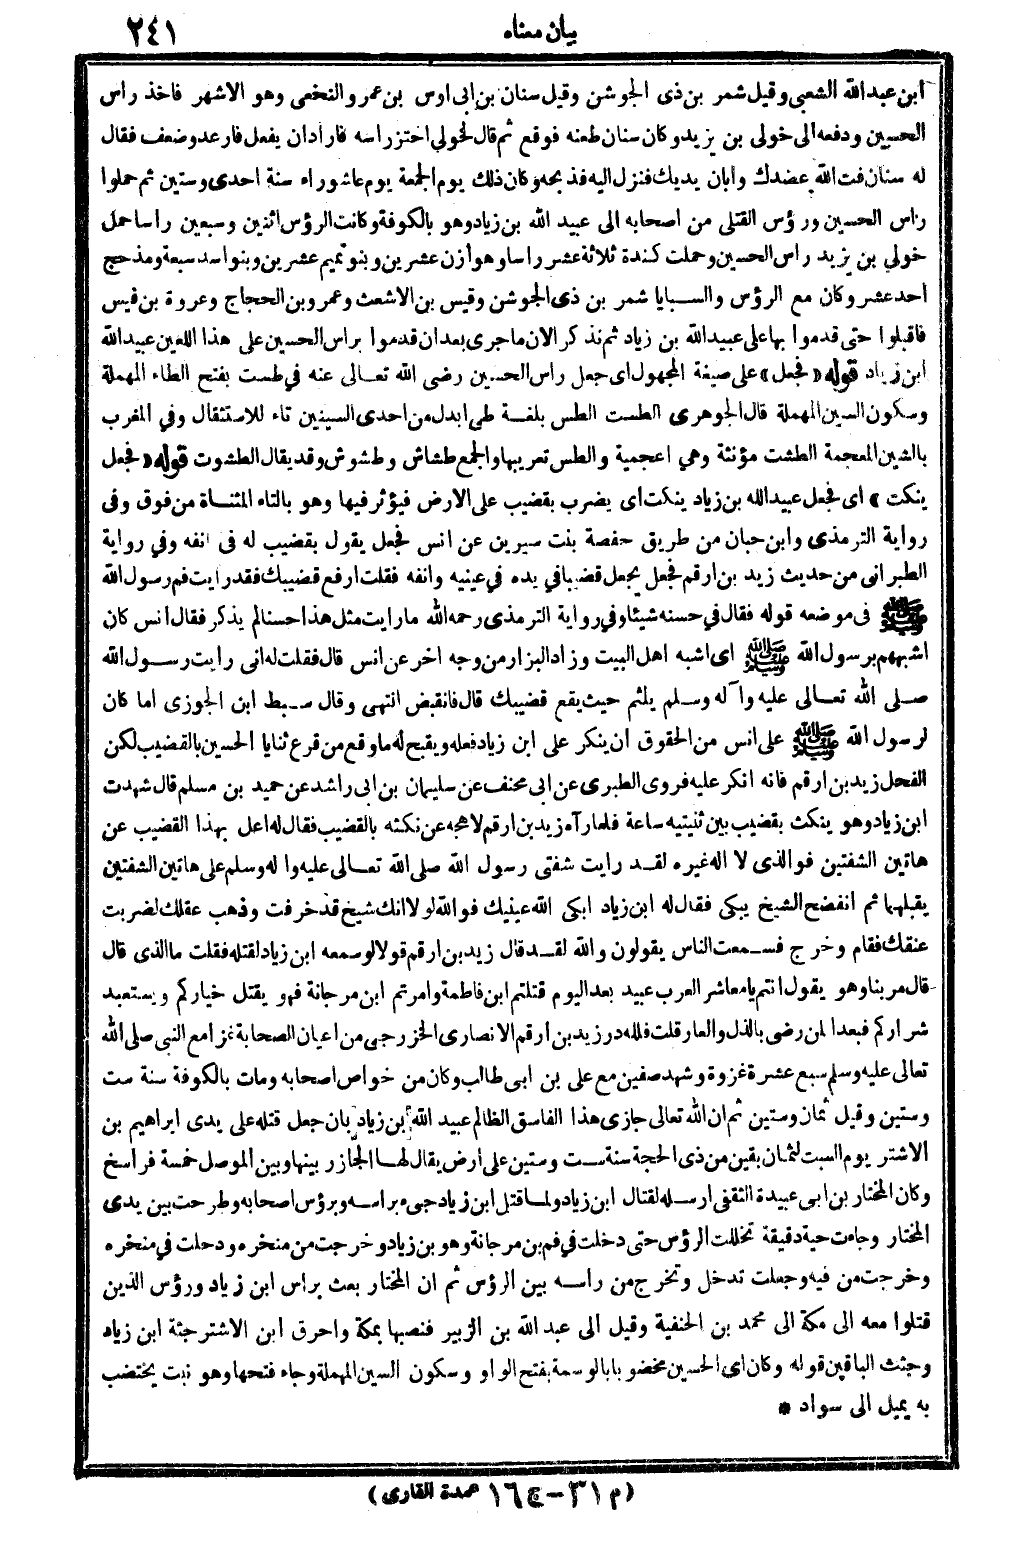 بيان معناه ٢٤١
ابن عبدالله الشعبي وقيل شمر بن ذى الجوشن وقيل سنان بن ابى اوس بن عمرو النخعى وهو الاشهر فاخذ راس
الحسين ودفعه الى خولى بن يزيد وكان سنان طعنه فوقع ثم قال لخولي احتز راسه فاراد ان يفعل فارعد وضعف فقال
له سنان فت الله عضدك وابان يديك فنزل اليه فذبحه وكان ذلك يوم الجمعة يوم عاشوراء سنة احدى وستين ثم حملوا
راس الحسين ورؤس القتلى من اصحابه الى عبيد الله بن زياد وهو بالكوفة وكانت الرؤس اثنين وسبعين راسا حمل
خولي بن يزيد راس الحسين وحملت كندة ثلاثة عشر راسا وهوازن عشرين وبنو تميم عشرين وبنو اسد سبعة ومذحج
احد عشر وكان مع الرؤس والسبايا شمر بن ذى الجوشن وقيس بن الاشعث وعمرو بن الحجاج وعروة بن قيس
فاقبلوا حتى قدموا بها على عبيدالله بن زياد ثم نذكر الان ماجرى بعد ان قدموا براس الحسين على هذا اللعين عبيدالله
ابن زياد قوله «فجعل» على صيغة المجهول اى جعل راس الحسين رضى الله تعالى عنه في طست بفتح الطاء المهملة
وسكون السين المهملة قال الجوهرى الطست الطس بلغة طى ابدل من احدى السينين تاء للاستثقال وفي المغرب
بالشين المعجمة الطشت مؤنثة وهي اعجمية والطس تعريبها والجمع طشاش وطشوش وقد يقال الطشوت قوله «فجعل
ينكت» اى فجعل عبيدالله بن زياد ينكت اى يضرب بقضيب على الارض فيؤثر فيها وهو بالتاء المثناة من فوق وفى
رواية الترمذى وابن حبان من طريق حفصة بنت سيرين عن انس فجعل يقول بقضيب له فى انفه وفي رواية
الطبرانى من حديث زيد بن ارقم فجعل يجعل قضيبا في يده في عينيه وانفه فقلت ارفع قضيبك فقد رايت فم رسول الله
ﷺ فى موضعه قوله فقال في حسنه شيئا وفي رواية الترمذى رحمه الله ما رايت مثل هذا حسنا لم يذكر فقال انس كان
اشبههم برسول الله ﷺ اى اشبه اهل البيت وزاد البزار من وجه اخر عن انس قال فقلت له انى رايت رسول الله
صلى الله تعالى عليه وآله وسلم يلثم حيث يقع قضيبك قال فانقبض انتهى وقال سبط ابن الجوزى اما كان
لرسول الله ﷺ على انس من الحقوق ان ينكر على ابن زياد فعله ويقبح له ما وقع من قرع ثنايا الحسين بالقضيب لكن
الفحل زيد بن ارقم فانه انكر عليه فروى الطبرى عن ابى مخنف عن سليمان بن ابى راشد عن حميد بن مسلم قال شهدت
ابن زياد وهو ينكث بقضيب بين ثنيتيه ساعة فلما رآه زيد بن ارقم لاهجه عن نكته بالقضيب فقال له اعل بهذا القضيب عن
هاتين الشفتين فوالذى لا اله غيره لقد رايت شفتى رسول الله صلى الله تعالى عليه واله وسلم على هاتين الشفتين
يقبلهما ثم انفضح الشيخ يبكى فقال له ابن زياد ابكى الله عينيك فوالله لولا انك شيخ قد خرفت وذهب عقلك لضربت
عنقك فقام وخرج فسمعت الناس يقولون والله لقد قال زيد بن ارقم قولا لو سمعه ابن زياد لقتله فقلت ما الذى قال
قال مر بنا وهو يقول انتم يا معاشر العرب عبيد بعد اليوم قتلتم ابن فاطمة وامرتم ابن مرجانة فهو يقتل خياركم ويستعبد
شراركم فبعدا لمن رضى بالذل والعار قلت فلله در زيد بن ارقم الانصارى الخزرجى من اعيان الصحابة غزا مع النبي صلى الله
تعالى عليه وسلم سبع عشرة غزوة وشهد صفين مع على بن ابى طالب وكان من خواص اصحابه ومات بالكوفة سنة ست
وستين وقيل ثمان وستين ثم ان الله تعالى جازى هذا الفاسق الظالم عبيد الله بن زياد بان جعل قتله على يدى ابراهيم بن
الاشتر يوم السبت لثمان بقين من ذى الحجة سنة ست وستين على ارض يقال لها الجازر بينها وبين الموصل خمسة فراسخ
وكان المختار بن ابى عبيدة الثقفى ارسله لقتال ابن زياد ولما قتل ابن زياد جىء براسه وبرؤس اصحابه وطرحت بين يدى
المختار وجاءت حية دقيقة تخللت الرؤس حتى دخلت في فم بن مرجانة وهو بن زياد وخرجت من منخره ودخلت في منخره
وخرجت من فيه وجعلت تدخل وتخرج من راسه بين الرؤس ثم ان المختار بعث براس ابن زياد ورؤس الذين
قتلوا معه الى مكة الى محمد بن الحنفية وقيل الى عبد الله بن الزبير فنصبها بمكة واحرق ابن الاشتر جثة ابن زياد
وجثث الباقين قوله وكان اى الحسين مخضوبا بالوسمة بفتح الواو وسكون السين المهملة وجاء فتحها وهو نبت يختضب
به يميل الى سواد *
(م ٣١ – ج ١٦ عمدة القارى)